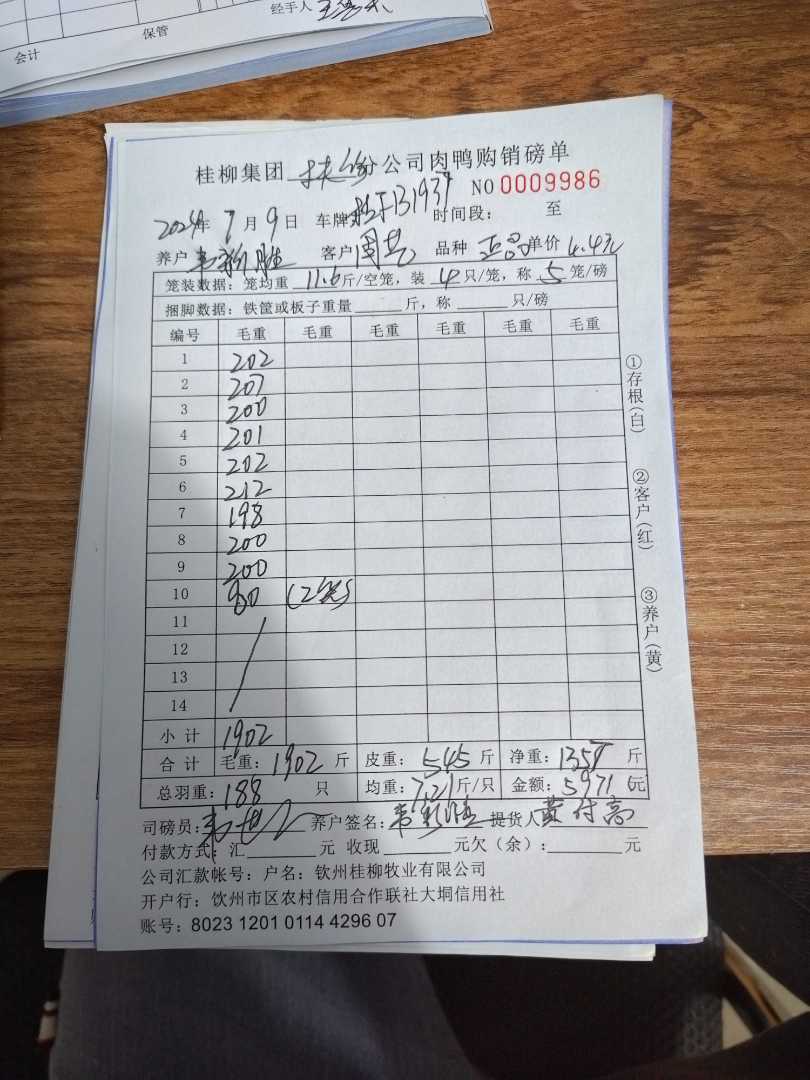 会计 保管 经手人
桂柳集团 扶绥 公司肉鸭购销磅单
NO 0009986
2024年7月9日 车牌 桂J B1937 时间段: 至
养户 韦新胜 客户 周艺 品种 正品 单价 4.4元
笼装数据: 笼均重 11.6 斤/空笼, 装 4 只/笼, 称 5 笼/磅
捆脚数据: 铁筐或板子重量 斤, 称 只/磅
编号 毛重 毛重 毛重 毛重 毛重
1 202
2 207
3 200
4 201
5 202
6 212
7 198
8 200
9 200
10 80 (2笼)
11
12
13
14
小计 1902
合计 毛重: 1902 斤 皮重: 545 斤 净重: 1357 斤
总羽重: 188 只 均重: 7.21 斤/只 金额: 5971 元
司磅员: 养户签名: 韦新胜 提货人 黄付高
付款方式: 汇 元 收现 元欠(余): 元
公司汇款帐号: 户名: 钦州桂柳牧业有限公司
开户行: 饮州市区农村信用合作联社大垌信用社
账号: 8023 1201 0114 4296 07
①存根(白)
②客户(红)
③养户(黄)